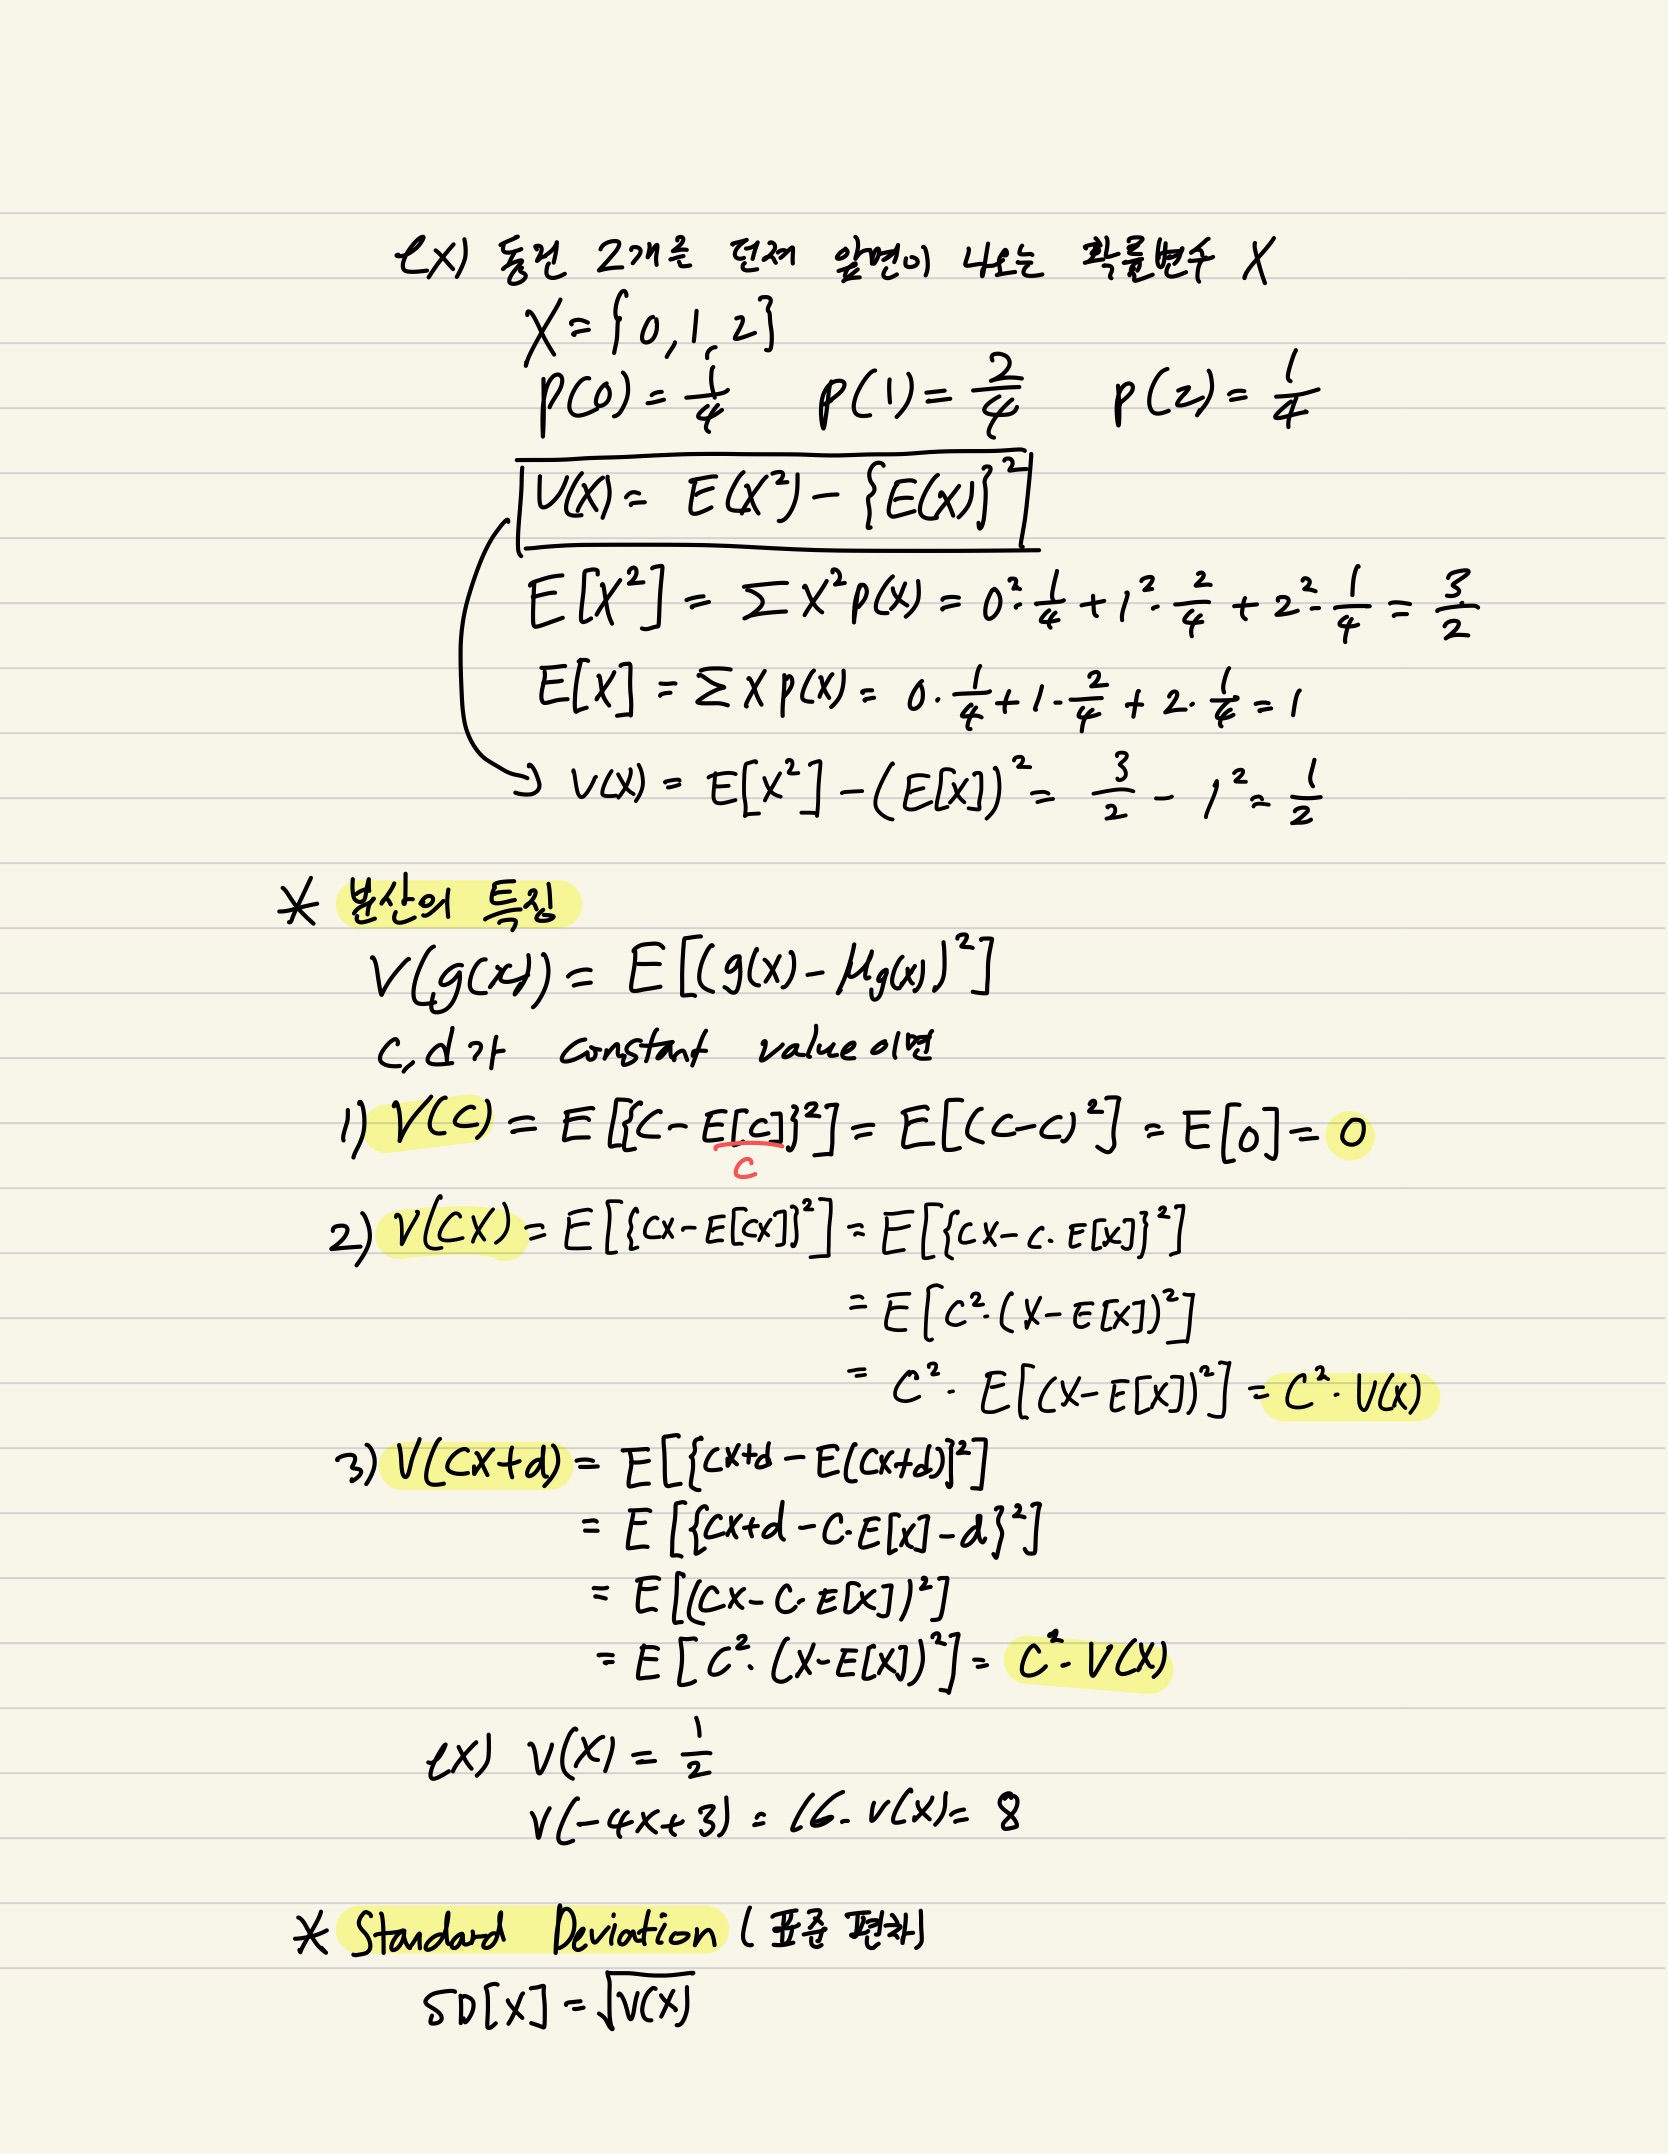 ex) 동전 2개를 던져 앞면이 나오는 확률변수 X
X = {0, 1, 2}
p(0) = 1/4 p(1) = 2/4 p(2) = 1/4
V(X) = E(X²) - {E(X)}²
E[X²] = ΣX²p(X) = 0²·1/4 + 1²·2/4 + 2²·1/4 = 3/2
E[X] = ΣX p(X) = 0·1/4 + 1·2/4 + 2·1/4 = 1
V(X) = E[X²] - (E[X])² = 3/2 - 1² = 1/2
* 분산의 특징
V(g(x)) = E[(g(X) - μg(x))²]
c, d가 constant value이면
1) V(C) = E[{C - E[c]}²] = E[(C-C)²] = E[0] = 0
c
2) V(CX) = E[{CX - E[CX]}²] = E[{CX - C·E[X]}²]
= E[C²·(X - E[X])²]
= C²·E[(X - E[X])²] = C²·V(X)
3) V(CX+d) = E[{CX+d - E(CX+d)}²]
= E[{CX+d - C·E[X] - d}²]
= E[(CX - C·E[X])²]
= E[C²·(X-E[X])²] = C²·V(X)
ex) V(X) = 1/2
V(-4X+3) = 16·V(X) = 8
* Standard Deviation (표준 편차)
SD[X] = √V(X)